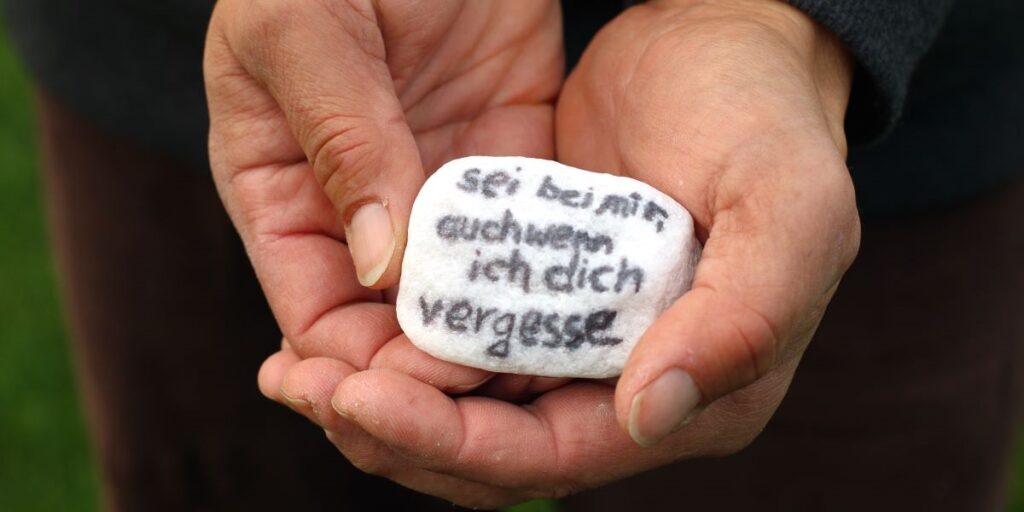 sei bei mir,
auch wenn
ich dich
vergesse